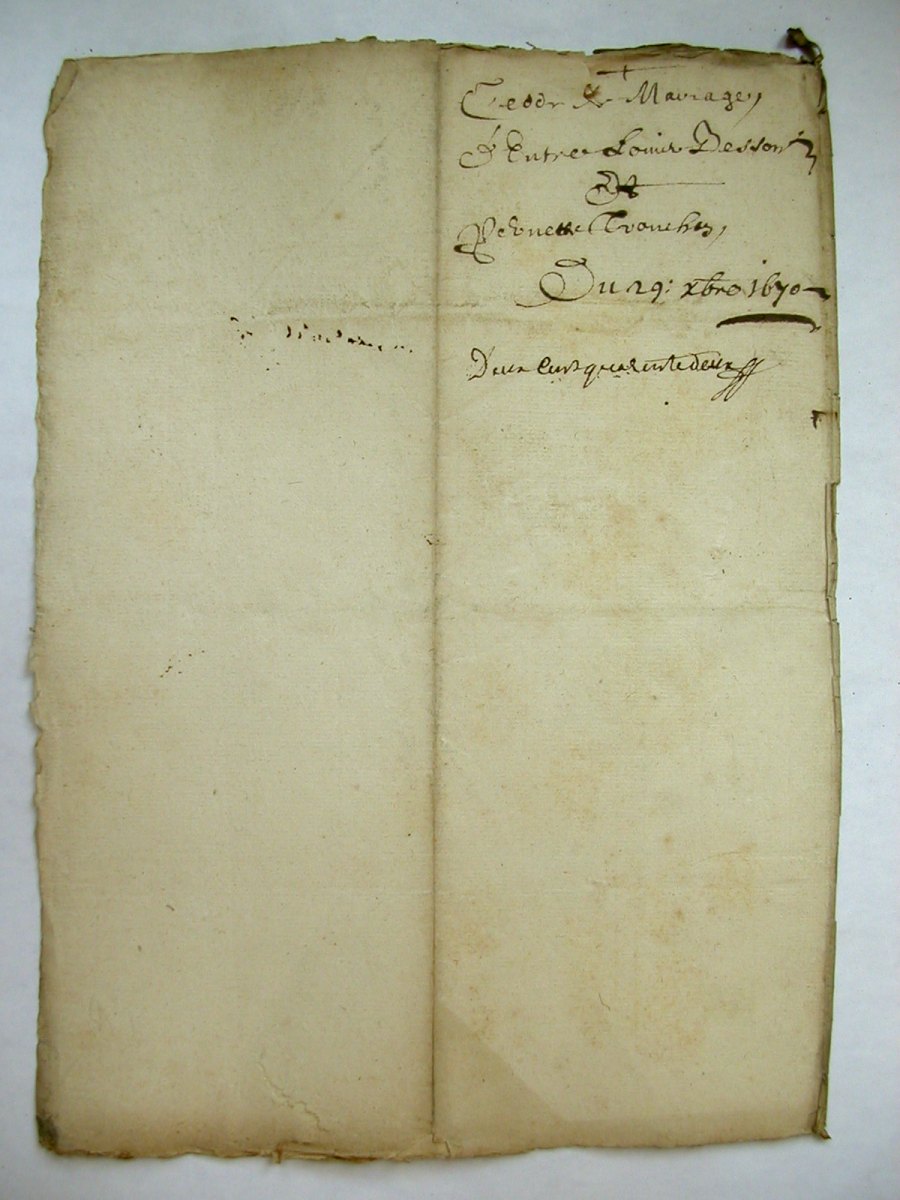 de Mariage
Entre Louis Besson
Et
Pernette Tronchin
Du 29: xbre 1670
Deux cent quarente deux